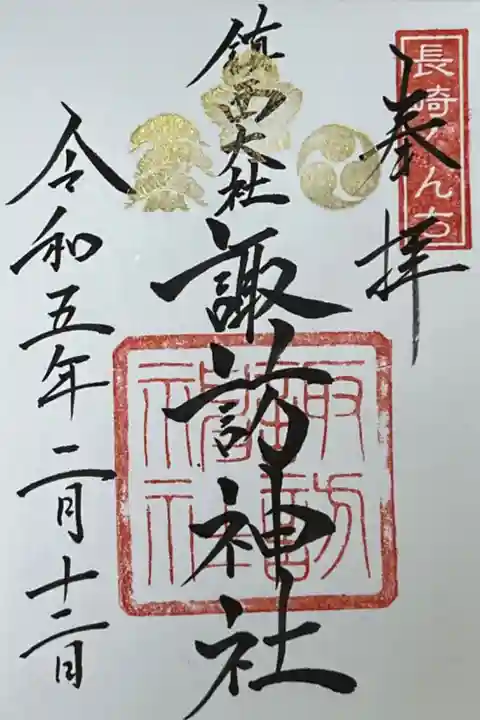 長崎くんち
奉拝
鎮西大社
諏訪神社
諏訪
神社
令和五年二月十二日